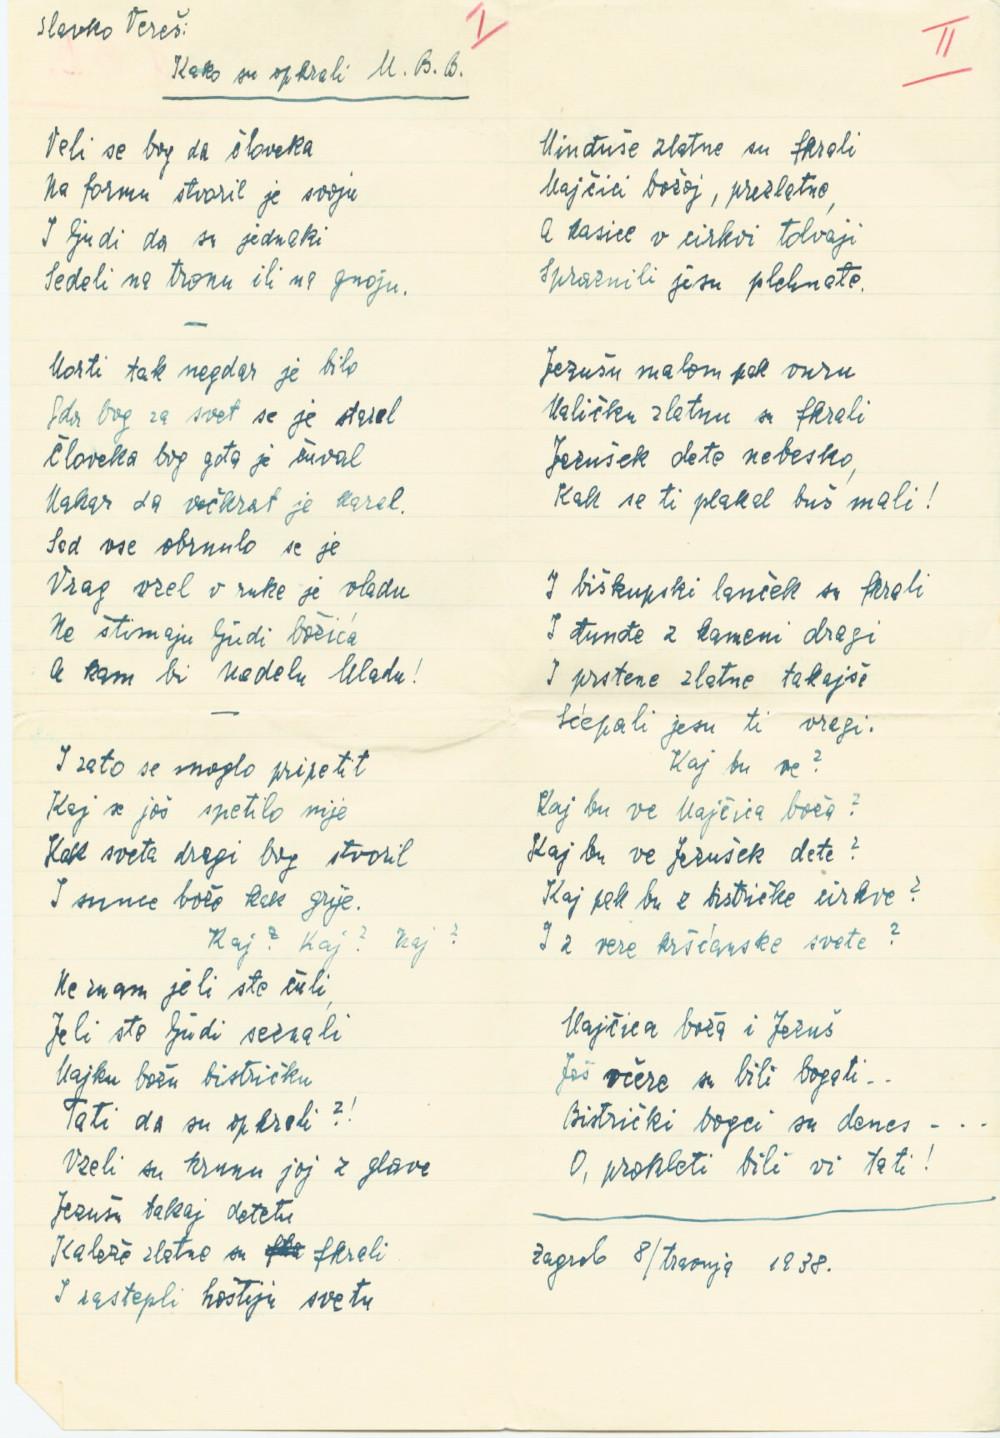 Slavko Vereš:
I
Kako su opkrali M. B. B.
Veli se bog da človeka
Na formu stvoril je svoju
I ljudi da su jednaki
Sedeli na tronu ili na gnoju.
—
Morti tak negdar je bilo
Gda bog za svet se je starel
Človeka bog gda je čuval
Makar da večkrat je karal.
Sad vse obrnulo se je
Vrag vzel v ruke je vladu
Ne štimaju ljudi božića
A kam bi nedelu Mladu!
—
I zato se moglo pripetit
Kaj se još spetilo nije
Kak sveta dragi bog stvoril
I sunce bože kak grije.
Kaj? Kaj? Kaj?
Ne znam jeli ste čuli,
Jeli ste ljudi seznali
Majku božu bistričku
Tati da su opkrali?!
Vzeli su krunu joj z glave
Jezušu takaj detetu
Kaleže zlatne su fkrali
I rastepli hostiju svetu
II
Minđuše zlatne su fkrali
Majčici božoj, prezlatne,
A kasice v cirkvi tolvaji
Spraznili jesu plehnate.
Jezušu malom pak vuru
Maličku zlatnu su fkrali
Jezušek dete nebesko,
Kak se ti plakal buš mali!
I biškupski lanček su fkrali
I đunđe z kameni dragi
I prstene zlatne takajše
Šćepali jesu ti vragi.
Kaj bu ve?
Kaj bu ve Majčica boža?
Kaj bu ve Jezušek dete?
Kaj pak bu z bistričke cirkve?
I z vere kršćanske svete?
Majčica boža i Jezuš
Još včera su bili bogati..
Bistrički bogci su denes - . .
O, prokleti bili vi tati!
Zagreb 8/travnja 1938.